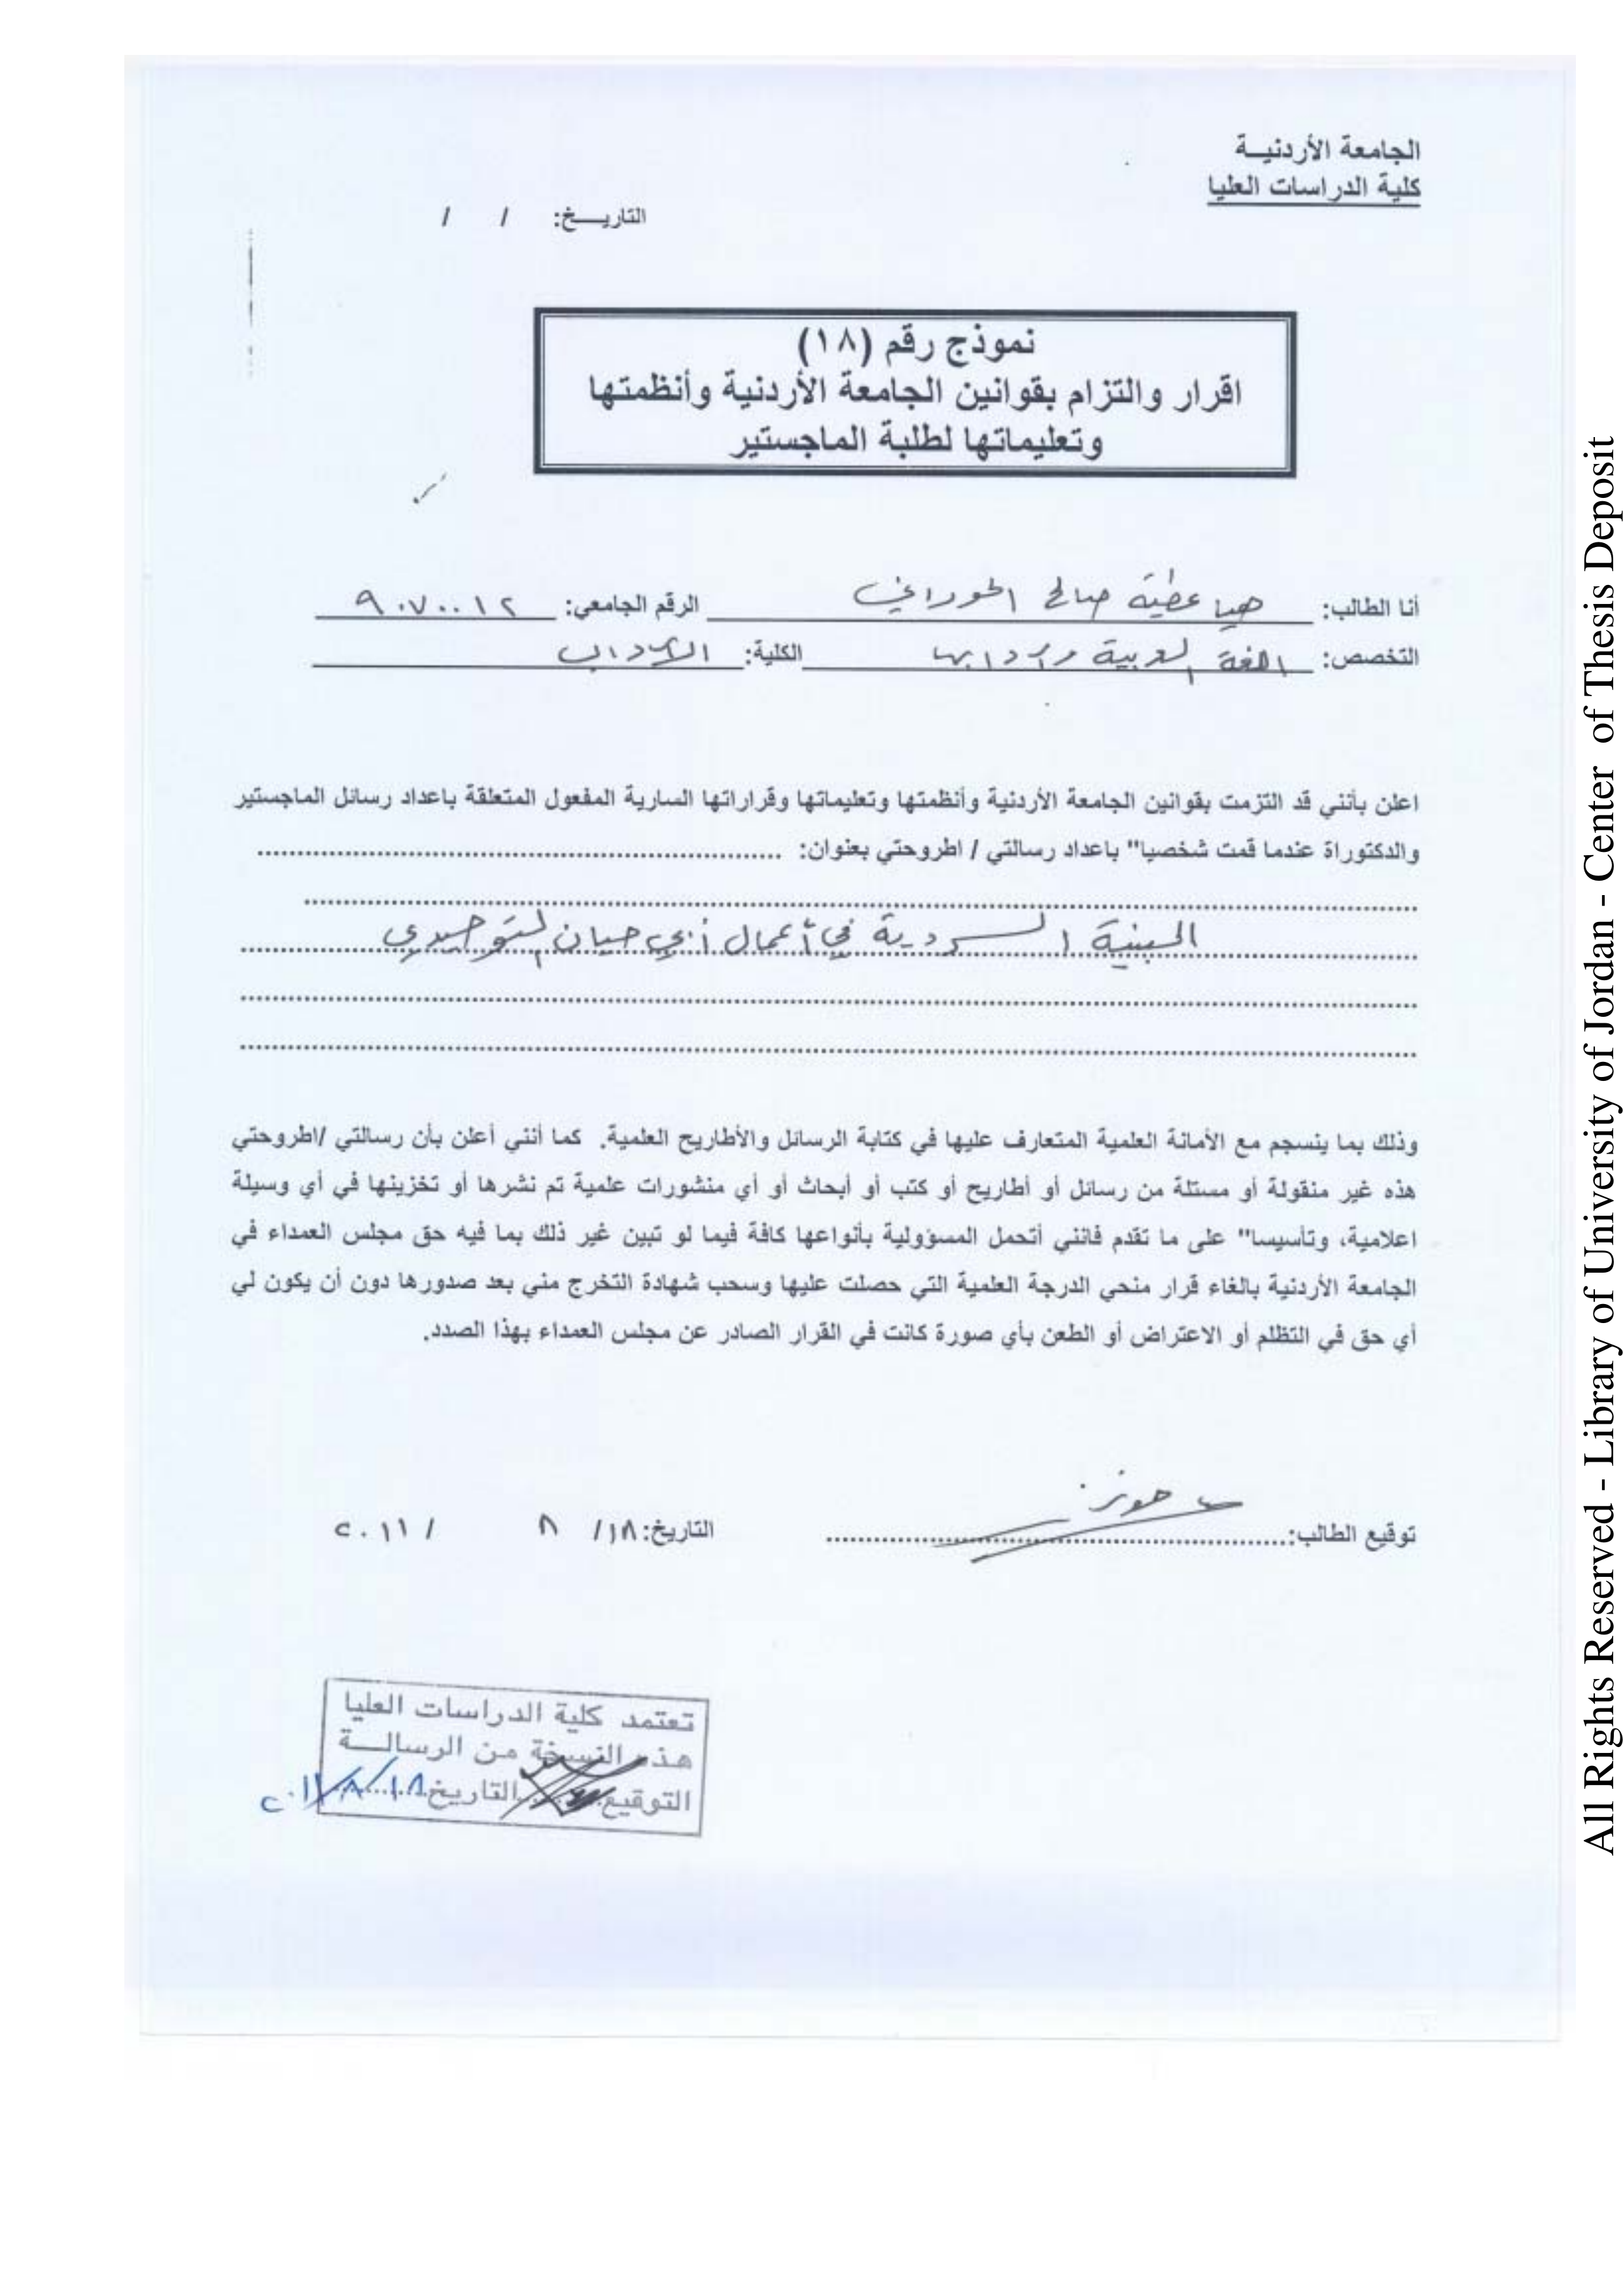 الجامعة الأردنيـة
كلية الدراسات العليا
التاريـــخ: / /
نموذج رقم (١٨)
اقرار والتزام بقوانين الجامعة الأردنية وأنظمتها
وتعليماتها لطلبة الماجستير
أنا الطالب: هيا عطية صالح الحوراني الرقم الجامعي: ٩٠٧٠٠١٢
التخصص: اللغة العربية وآدابها الكلية: الآداب
اعلن بأنني قد التزمت بقوانين الجامعة الأردنية وأنظمتها وتعليماتها وقراراتها السارية المفعول المتعلقة باعداد رسائل الماجستير
والدكتوراة عندما قمت شخصيا" باعداد رسالتي / اطروحتي بعنوان:
البنية السردية في أعمال أبي حيان التوحيدي
وذلك بما ينسجم مع الأمانة العلمية المتعارف عليها في كتابة الرسائل والأطاريح العلمية. كما أنني أعلن بأن رسالتي /اطروحتي
هذه غير منقولة أو مستلة من رسائل أو أطاريح أو كتب أو أبحاث أو أي منشورات علمية تم نشرها أو تخزينها في أي وسيلة
اعلامية، وتأسيسا" على ما تقدم فانني أتحمل المسؤولية بأنواعها كافة فيما لو تبين غير ذلك بما فيه حق مجلس العمداء في
الجامعة الأردنية بالغاء قرار منحي الدرجة العلمية التي حصلت عليها وسحب شهادة التخرج مني بعد صدورها دون أن يكون لي
أي حق في التظلم أو الاعتراض أو الطعن بأي صورة كانت في القرار الصادر عن مجلس العمداء بهذا الصدد.
توقيع الطالب: التاريخ: ١٨/ ٨ / ٢٠١١
تعتمد كلية الدراسات العليا
هذه النسخة من الرسالـــة
التوقيع التاريخ ١٨/٨/٢٠١١
All Rights Reserved - Library of University of Jordan - Center of Thesis Deposit